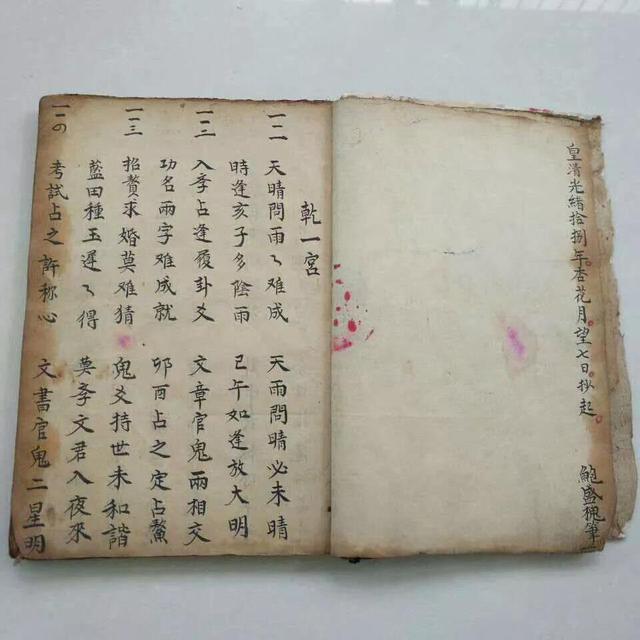 皇清光緒拾捌年杏花月望七日抄起
鮑盛槐筆
乾一宮
一一 天晴問雨〻难成 天雨問晴必未晴
時逢亥子多陰雨 巳午如逢放大明
一二 入季占逢履卦爻 文章官鬼兩相交
功名兩字难成就 卯酉占之定占鰲
一三 招贅求婚莫难猜 鬼爻持世未和諧
藍田種玉遲〻得 莫季文君入夜來
一〤 考試占之許称心 文書官鬼二星明